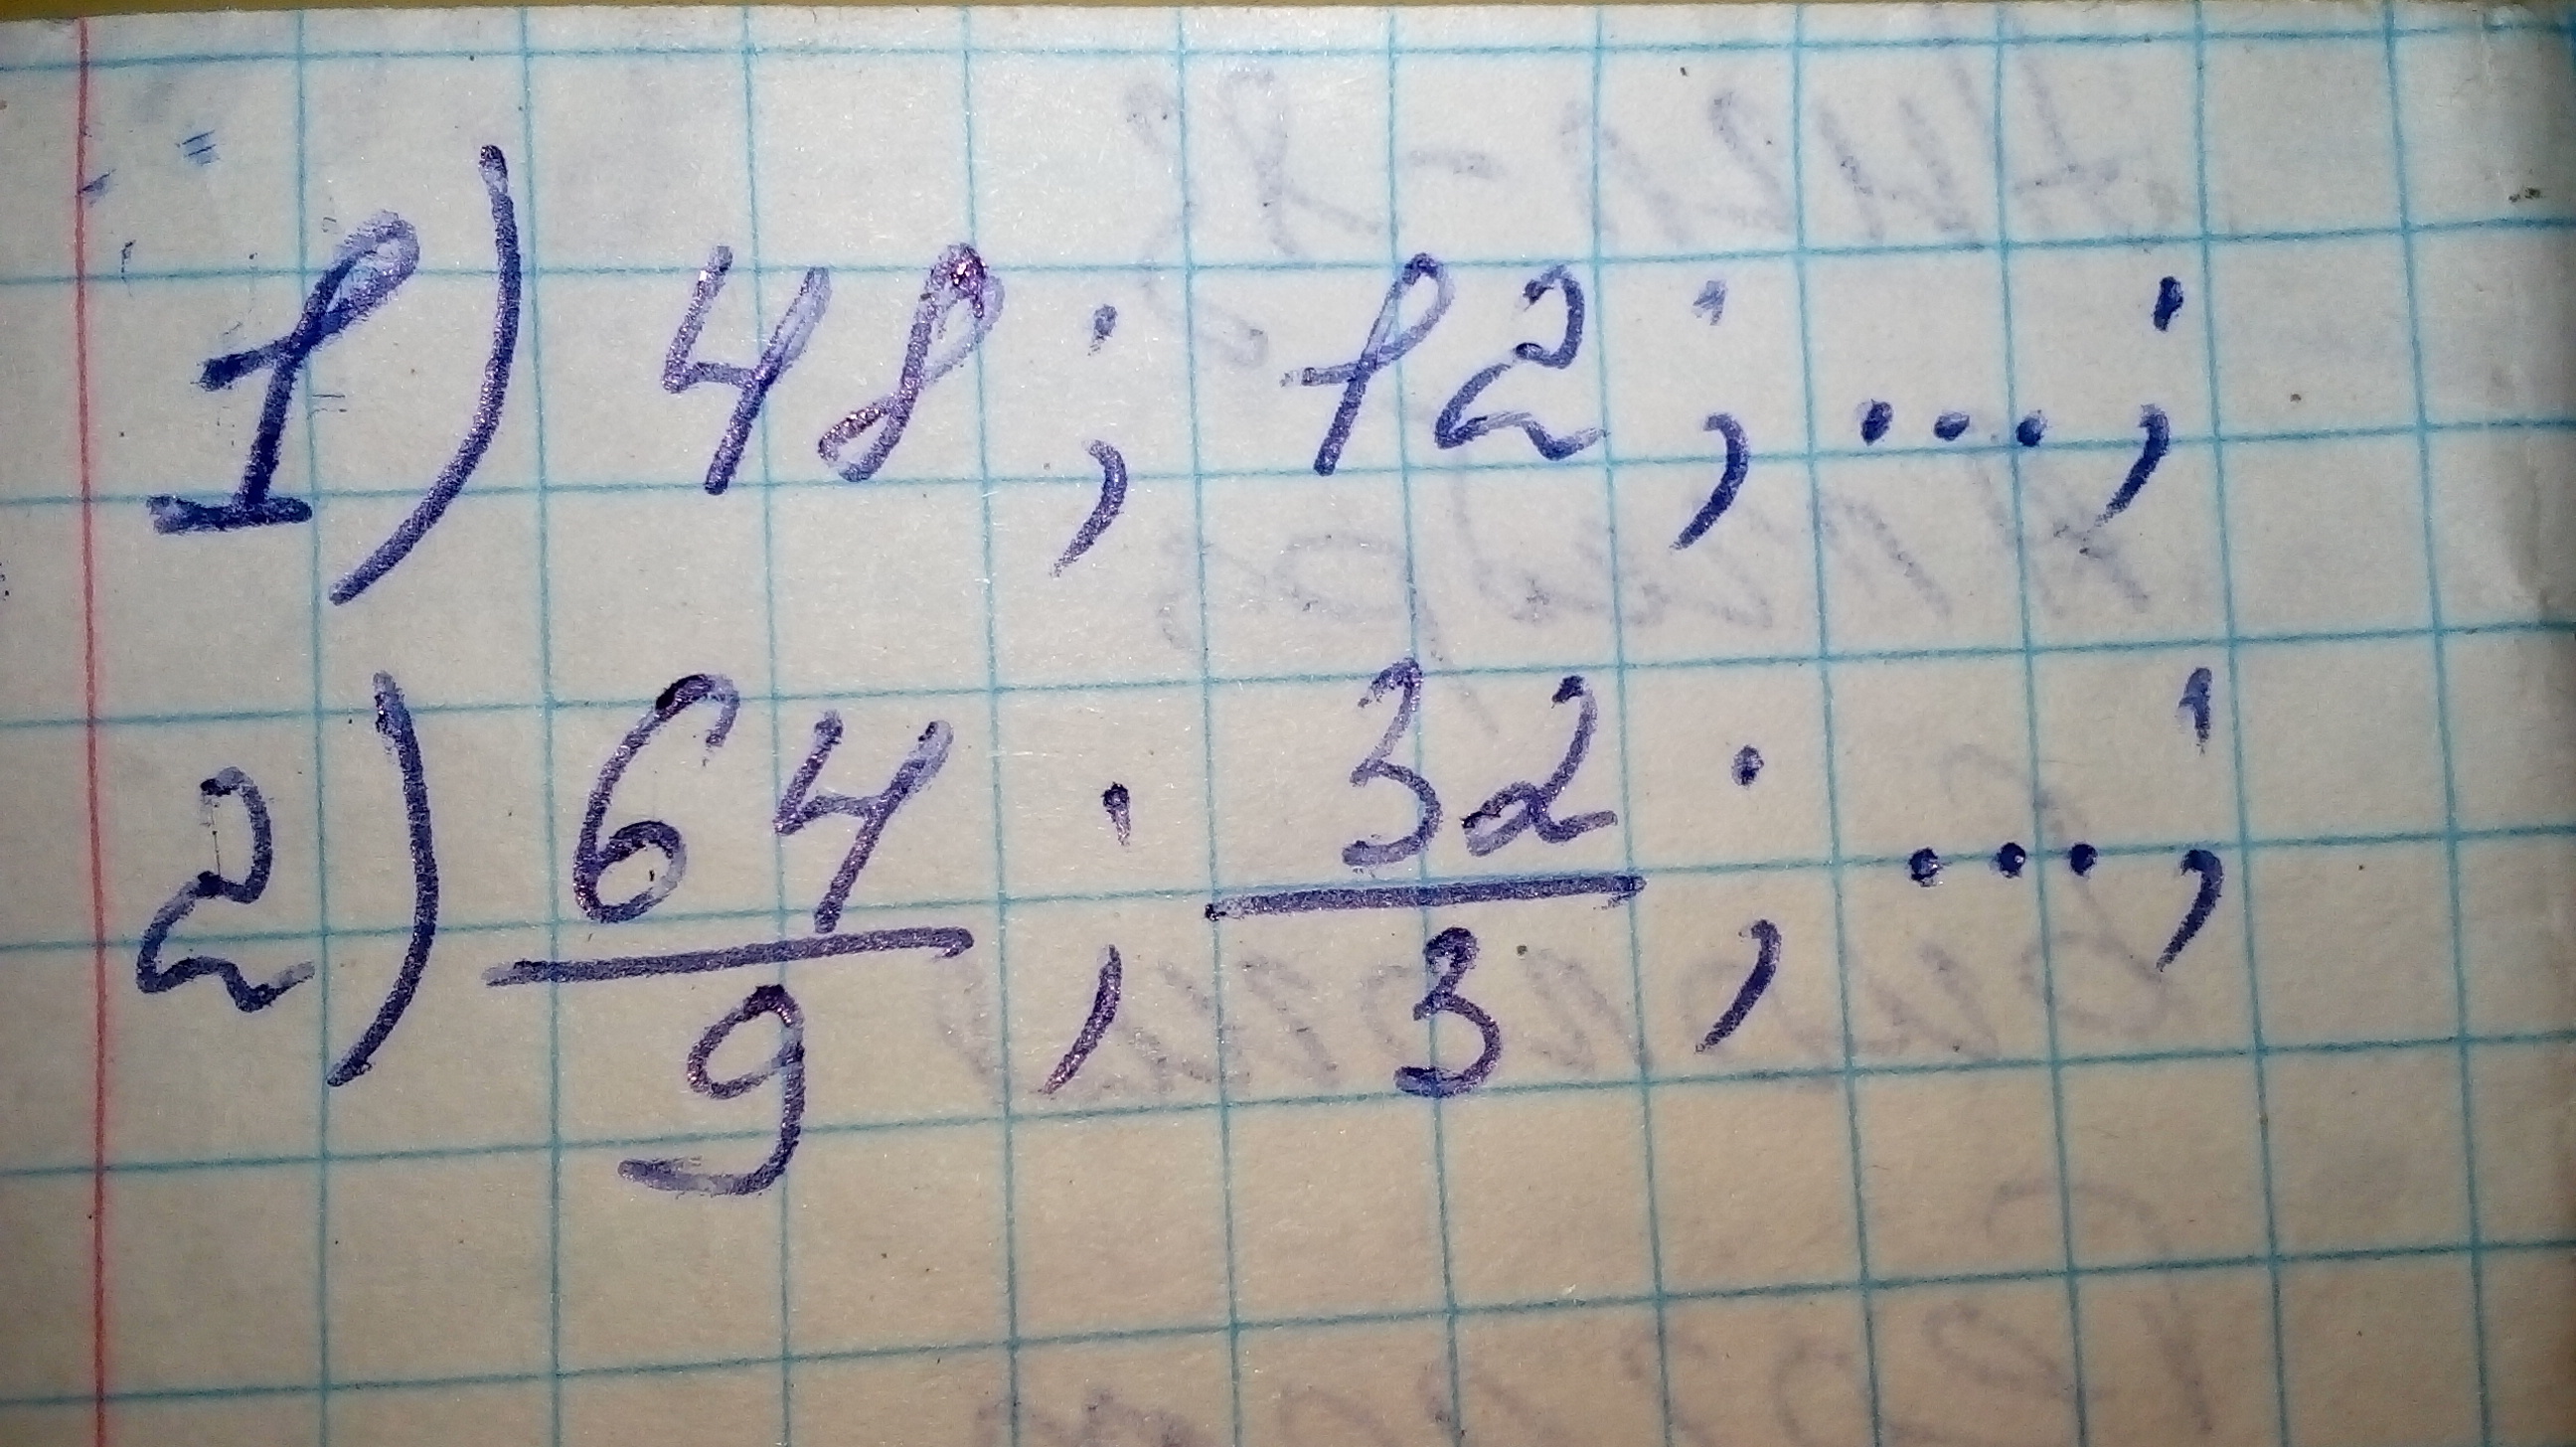 1) 48; 12; ...;
2) 64/9; 32/3; ...;